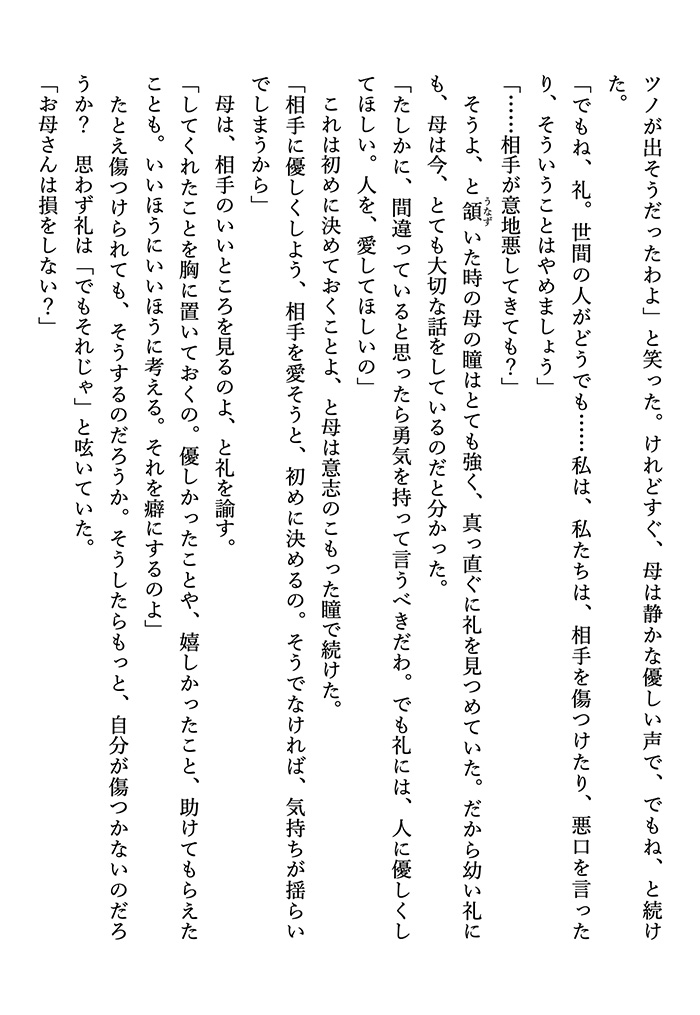 ツノが出そうだったわよ」と笑った。けれどすぐ、母は静かな優しい声で、でもね、と続け
た。
「でもね、礼。世間の人がどうでも……私は、私たちは、相手を傷つけたり、悪口を言った
り、そういうことはやめましょう」
「……相手が意地悪してきても？」
そうよ、と頷いた時の母の瞳はとても強く、真っ直ぐに礼を見つめていた。だから幼い礼に
うなず
も、母は今、とても大切な話をしているのだと分かった。
「たしかに、間違っていると思ったら勇気を持って言うべきだわ。でも礼には、人に優しくし
てほしい。人を、愛してほしいの」
これは初めに決めておくことよ、と母は意志のこもった瞳で続けた。
「相手に優しくしよう、相手を愛そうと、初めに決めるの。そうでなければ、気持ちが揺らい
でしまうから」
母は、相手のいいところを見るのよ、と礼を諭す。
「してくれたことを胸に置いておくの。優しかったことや、嬉しかったこと、助けてもらえた
ことも。いいほうにいいほうに考える。それを癖にするのよ」
たとえ傷つけられても、そうするのだろうか。そうしたらもっと、自分が傷つかないのだろ
うか？　思わず礼は「でもそれじゃ」と呟いていた。
「お母さんは損をしない？」